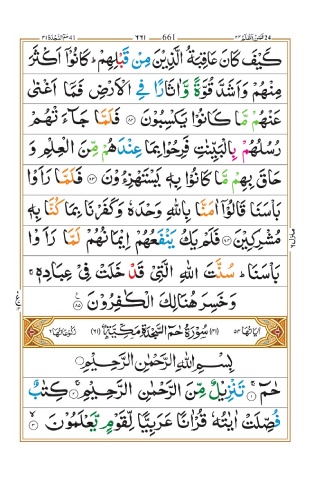 حٰمٓ السجدة ٤١ ٦٦١ 661 فمن اظلم ٢٤
كَيْفَ كَانَ عَاقِبَةُ الَّذِيْنَ مِنْ قَبْلِهِمْ ؕ كَانُوْۤا اَكْثَرَ
مِنْهُمْ وَاَشَدَّ قُوَّةً وَّاٰثَارًا فِي الْاَرْضِ فَمَاۤ اَغْنٰى
عَنْهُمْ مَّا كَانُوْا يَكْسِبُوْنَ ﴿۸۲﴾ فَلَمَّا جَآءَتْهُمْ
رُسُلُهُمْ بِالْبَيِّنٰتِ فَرِحُوْا بِمَا عِنْدَهُمْ مِّنَ الْعِلْمِ وَ
حَاقَ بِهِمْ مَّا كَانُوْا بِهٖ يَسْتَهْزِءُوْنَ ﴿۸۳﴾ فَلَمَّا رَاَوْا
بَاْسَنَا قَالُوْۤا اٰمَنَّا بِاللّٰهِ وَحْدَهٗ وَكَفَرْنَا بِمَا كُنَّا بِهٖ
مُشْرِكِيْنَ ﴿۸۴﴾ فَلَمْ يَكُ يَنْفَعُهُمْ اِيْمَانُهُمْ لَمَّا رَاَوْا
بَاْسَنَا ؕ سُنَّتَ اللّٰهِ الَّتِيْ قَدْ خَلَتْ فِيْ عِبَادِهٖ ۚ
وَخَسِرَ هُنَالِكَ الْكٰفِرُوْنَ ﴿۸۵﴾
اٰيَاتُهَا ٥٤ (٤١) سُوْرَةُ حٰمٓ السَّجْدَةِ مَكِّيَّةٌ (٦١) رُكُوْعَاتُهَا ٦
بِسْمِ اللّٰهِ الرَّحْمٰنِ الرَّحِيْمِ
حٰمٓ ﴿۱﴾ تَنْزِيْلٌ مِّنَ الرَّحْمٰنِ الرَّحِيْمِ ﴿۲﴾ كِتٰبٌ
فُصِّلَتْ اٰيٰتُهٗ قُرْاٰنًا عَرَبِيًّا لِّقَوْمٍ يَّعْلَمُوْنَ ﴿۳﴾